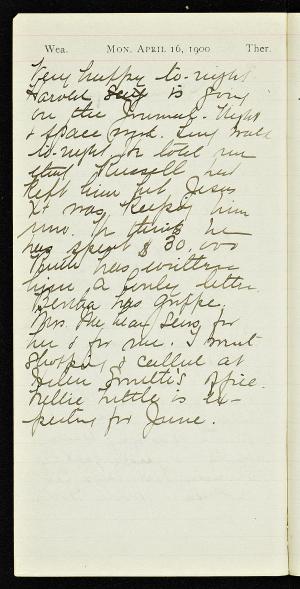 Wea. MON. APRIL 16, 1900 Ther.
Very happy to-night.
Harold is going
on the Journal. Night
& space work. Long walk
to-night. He told me
that Russell had
kept him but Jesus
Xt was keeping him
now. He thinks he
has spent $30,000
Ruth has written
him a lovely letter.
Bertha has grippe.
Mrs. Hey sews for
her & for me. I went
shopping & called at
Helen Smith's office.
Nellie Little is ex-
pecting for June.